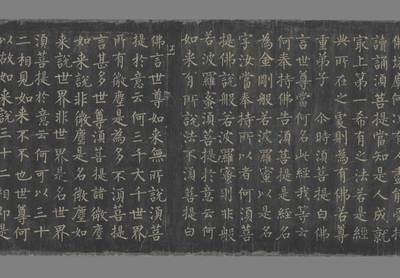 佛塔廟何況有人盡能受持
讀誦須菩提當知是人成就
最上第一希有之法若是經
典所在之處則為有佛若尊
重弟子 尒時須菩提白佛
言世尊當何名此經我等云
何奉持佛告須菩提是經名
為金剛般若波羅蜜以是名
字汝當奉持所以者何須菩
提佛說般若波羅蜜則非般
若波羅蜜須菩提於意云何
如來有所說法不須菩提白
佛言世尊如來無所說須菩
提於意云何三千大千世界
所有微塵是為多不須菩提
言甚多世尊須菩提諸微塵
如來說非微塵是名微塵如
來說世界非世界是名世界
須菩提於意云何可以三十
二相見如來不不也世尊何
以故如來說三十二相即是